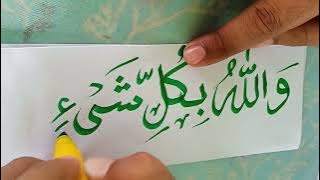 وَاللّٰهُ بِكُلِّ شَیْءٍ